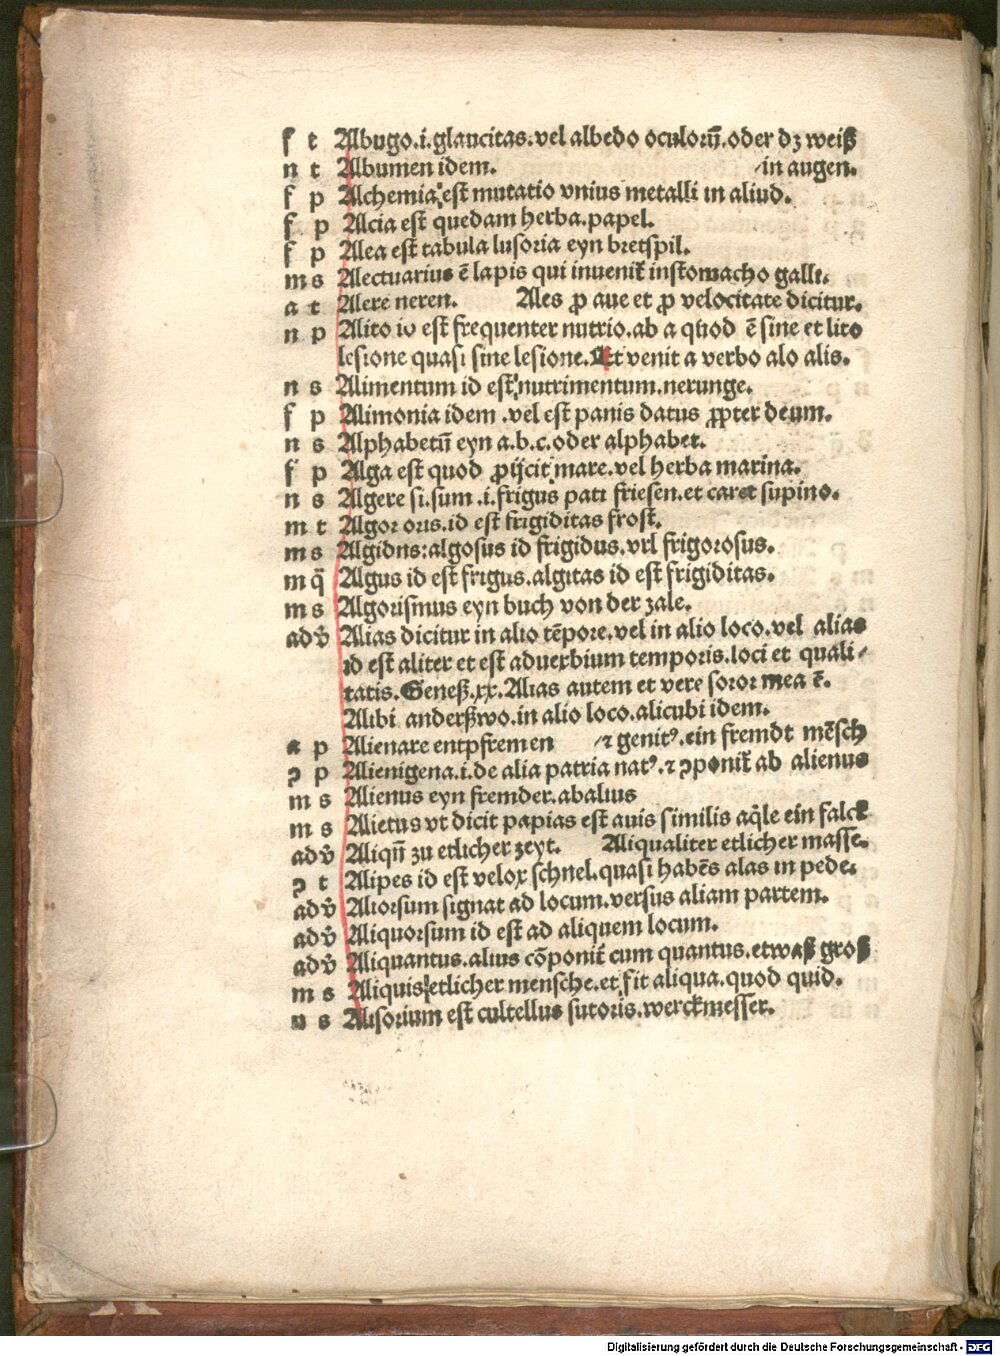 f t Albugo.i.glaucitas.vel albedo oculoꝝ̃.oder dz weiß
n t Albumen idem. ⸗in augen.
f p Alchemia:est mutatio vnius metalli in aliud.
f p Alcia est quedam herba.papel.
f p Alea est tabula lusoria eyn bretspil.
m s Alectuarius ē lapis qui inuenit̃ instomacho galli.
a t Alere neren. Ales ꝓ aue et ꝓ velocitate dicitur.
n p Alito io est frequenter nutrio.ab a qḋod ē sine et lito
lesione quasi sine lesione. Et venit a verbo alo alis.
n s Alimentum id est:nutrimentum.nerunge.
f p Alimonia idem .vel est panis datus ꝓpter deum.
n s Alphabetū eyn a.b.c.oder alphabet.
f p Alga est quod ꝓijcit mare.vel herba marina.
n s Algere si.sum .i.frigus pati friesen.et caret supino.
m t Algor oris.id est frigiditas frost.
m s Algidns:algosus id frigidus.vrl frigorosus.
m q̄ Algus id est frigus.algitas id est frigiditas.
m s Algorismus eyn buch von der zale.
adv̉ Alias dicitur in alio tēpore.vel in alio loco.vel alias
id est aliter et est aduerbium temporis.loci et quali⸗
tatis.Geneß.xx.Alias autem et vere soror mea ē.
Alibi anderßwo.in alio loco.alicubi idem.
a p Alienare entpfremen ⸗⁊ genitꝰ.ein fremdt mēsch
ꝯ p Alienigena.i.de alia patria natꝰ.⁊ ꝯponit̃ ab alienus
m s Alienus eyn fremder.abalius
m s Alietus vt dicit papias est auis similis aq̇le ein falck
adv̉ Aliqn̄ zu etlicher zeyt. Aliqualiter etlicher masse.
ꝯ t Alipes id est velox schnel.quasi habēs alas in pede.
adv̉ Aliorsum signat ad locum.versus aliam partem.
adv̉ Aliquorsum id est ad aliquem locum.
adv̉ Aliquantus.alius cōponit̃ cum quantus.etwaß groß
m s Aliquis:etlicher mensche.et fit aliqua.quod quid.
n s Alisorium est cultellus sutoris.werckmesser.
Digitalisierung gefördert durch die Deutsche Forschungsgemeinschaft - DFG